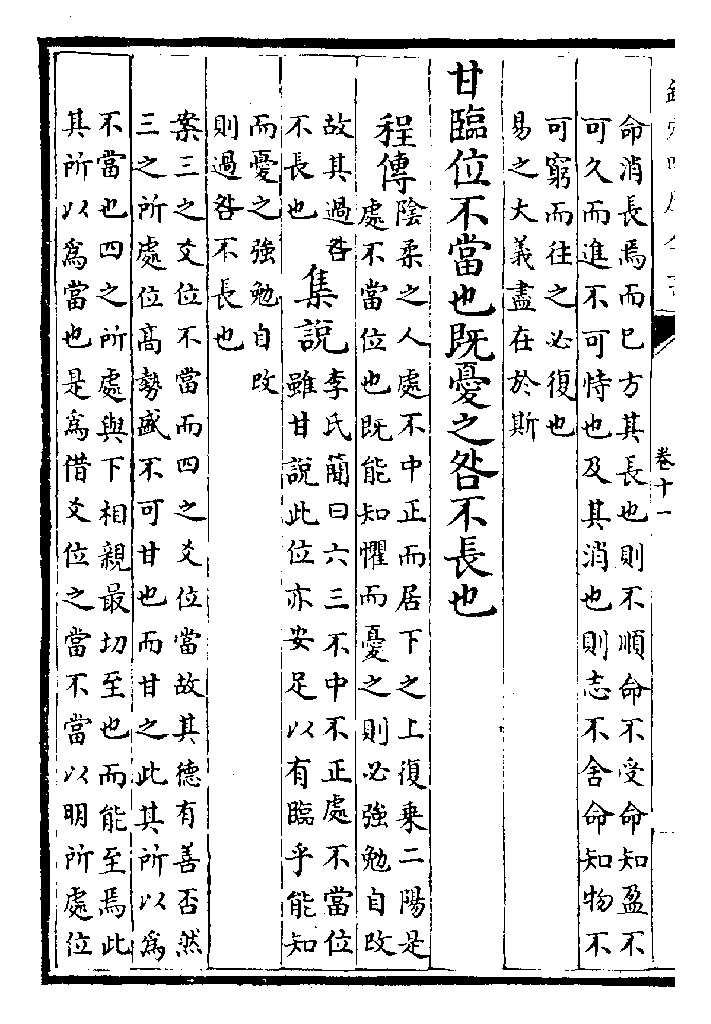 卷十一
命消長焉而已方其長也則不順命不受命知盈不
可久而進不可恃也及其消也則志不舍命知物不
可窮而往之必復也
易之大義盡在於斯
甘臨位不當也既憂之咎不長也
程傳
陰柔之人處不中正而居下之上復乗二陽是
處不當位也既能知懼而憂之則必強勉自改
故其過咎
不長也
集說
李氏簡曰六三不中不正處不當位
雖甘說此位亦安足以有臨乎能知
而憂之強勉自改
則過咎不長也
案三之爻位不當而四之爻位當故其德有善否然
三之所處位高勢盛不可甘也而甘之此其所以為
不當也四之所處與下相親最切至也而能至焉此
其所以為當也是為借爻位之當不當以明所處位